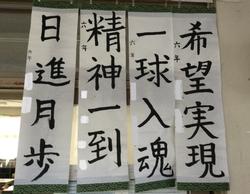 希望実現
六年
一球入魂
六年
精神一到
六年
日進月歩